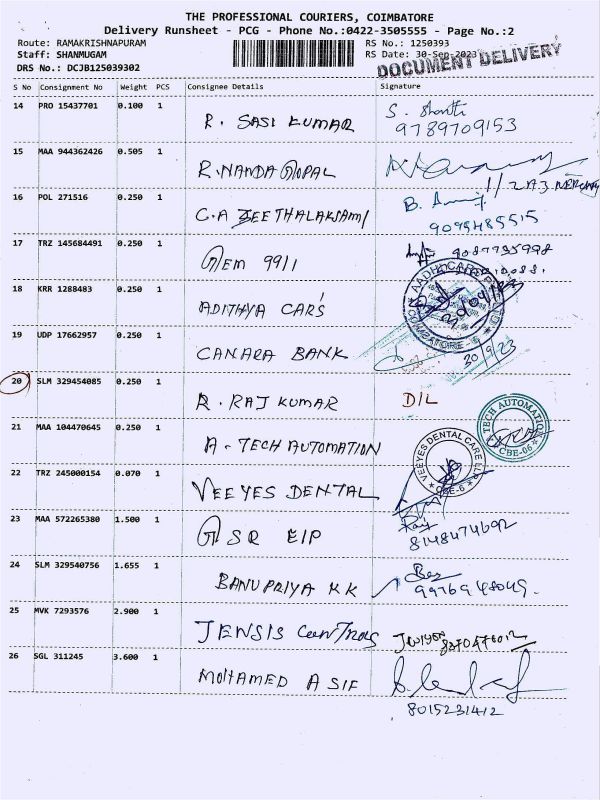 THE PROFESSIONAL COURIERS, COIMBATORE
Delivery Runsheet - PCG - Phone No.:0422-3505555 - Page No.:2
Route: RAMAKRISHNAPURAM RS No.: 1250393
Staff: SHANMUGAM RS Date: 30-Sep-2023
DRS No.: DCJB125039302 DOCUMENT DELIVERY
S No Consignment No Weight PCS Consignee Details Signature
14 PRO 15437701 0.100 1 R. SASI KUMAR S. Shanthi
9789709153
15 MAA 944362426 0.505 1 R. NANDA GOPAL
16 POL 271516 0.250 1 C.A JEETHALAKSAMI B.
9095485515
17 TRZ 145684491 0.250 1 GEM 9911
18 KRR 1288483 0.250 1 ADITHYA CAR'S
19 UDP 17662957 0.250 1 CANARA BANK 30/9/23
20 SLM 329454085 0.250 1 R. RAJ KUMAR D/L
21 MAA 104470645 0.250 1 A-TECH AUTOMATION A TECH AUTOMATION CBE-06
22 TRZ 245000154 0.070 1 VEEYES DENTAL VEEYES DENTAL CARE LLP CBE-6
23 MAA 572265380 1.500 1 G SR EIP
8148474692
24 SLM 329540756 1.655 1 BANUPRIYA KK
9976948049
25 MVK 7293576 2.900 1 JENSIS
26 SGL 311245 3.600 1 MOHAMED ASIF
8015231412